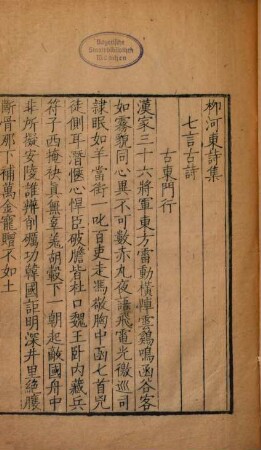 柳河東詩集
七言古詩
古東門行
漢家三十六將軍東方雷動橫陣雲鷄鳴函谷客
如霧貌同心異不可數赤丸夜語飛電光徼巡司
隷眠如羊當街一叱百吏走馮敬胸中函匕首兇
徒側耳潛愜心悍臣破膽皆杜口魏王卧内藏兵
符子西掩袂真無辜羗胡轂下一朝起敵國舟中
非所擬安陵誰辨削礪功韓國詎明深井里絶臏
斷骨那下補萬金寵贈不如土
Bayerische
Staatsbibliothek
München